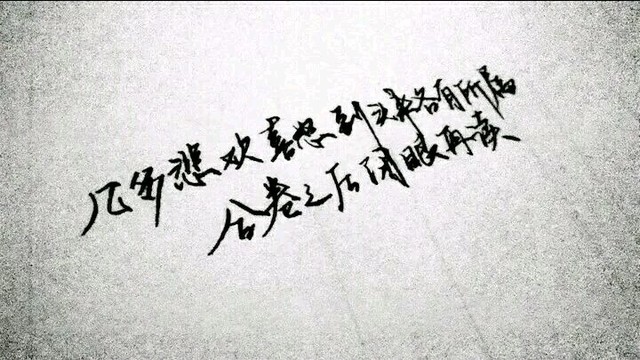 几多悲欢喜怒到头来各有所属
合卷之后闭眼再读